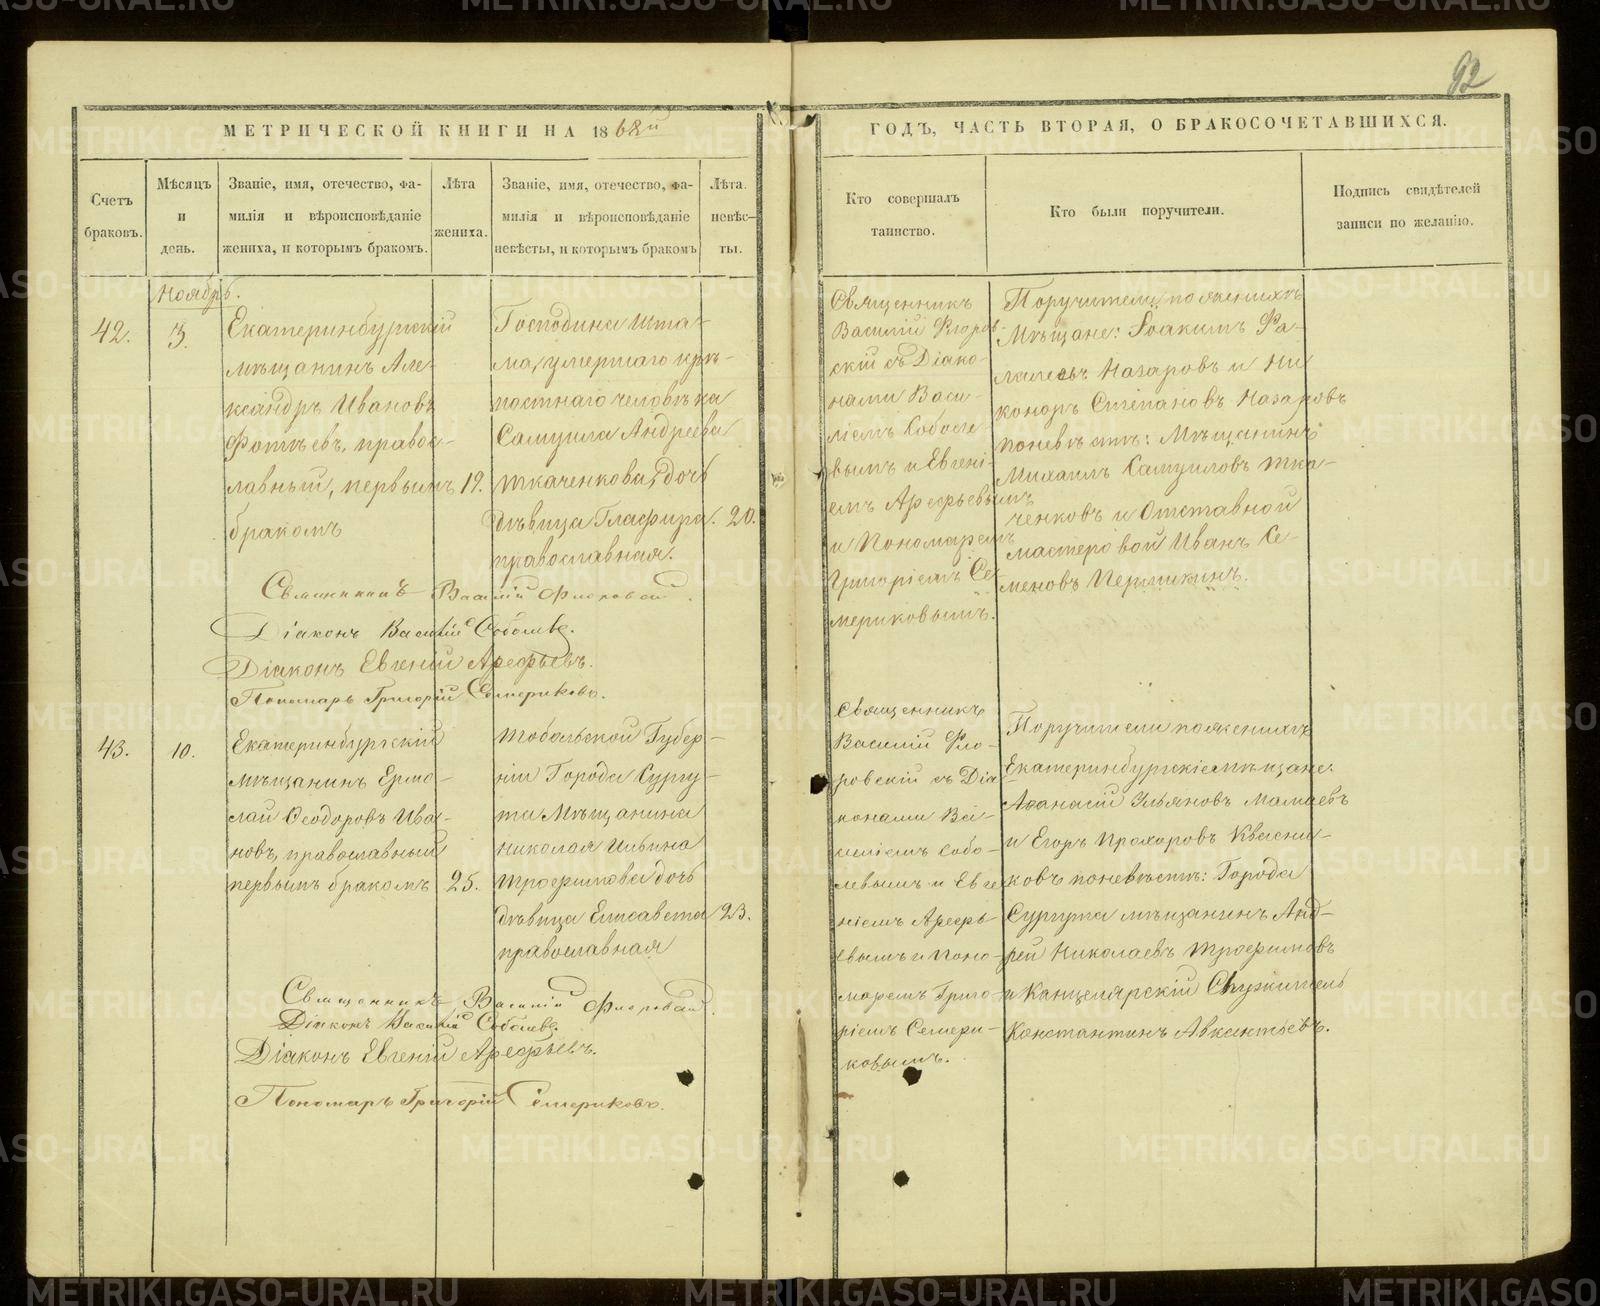 92
МЕТРИЧЕСКОЙ КНИГИ НА 1868й
ГОДЪ, ЧАСТЬ ВТОРАЯ, О БРАКОСОЧЕТАВШИХСЯ.
Счетъ
браковъ.
Мѣсяцъ
и
день.
Званіе, имя, отечество, фа-
милія и вѣроисповѣданіе
жениха, и которымъ бракомъ.
Лѣта
жениха.
Званіе, имя, отечество, фа-
милія и вѣроисповѣданіе
невѣсты, и которымъ бракомъ
Лѣта.
невѣс-
ты.
Кто совершалъ
таинство.
Кто были поручители.
Подпись свидѣтелей
записи по желанію.
Ноябрь.
42.
3.
Екатеринбургскій
мѣщанинъ Але-
ксандръ Ивановъ
Фотѣевъ, правос-
лавный, первымъ
бракомъ
19.
Господина Шта-
ма, умершаго крѣ-
постнаго человѣка
Самуила Андреева
Ткаченкова, дочь
дѣвица Глафира.
православная.
20.
Священникъ
Василій Флоров-
скій съ Діако-
нами Васи-
ліемъ Соболе
вымъ и Евгені-
емъ Арефьевымъ
и Пономаремъ
Григоріемъ Се
мериковымъ.
Поручители, по женихѣ
Мѣщане: Іоакимъ
Назаровъ и Ни
коноръ Степановъ Назаровъ
по невѣстѣ: Мѣщанинъ
Михаилъ Самуиловъ Тка-
ченковъ и Отставной
мастеровой Иванъ Се-
меновъ Першикинъ.
Священникъ Василій Флоровскій.
Діаконъ Василій Соболевъ.
Діаконъ Евгеній Арефьевъ.
Пономарь Григорій Семериковъ.
43.
10.
Екатеринбургскій
мѣщанинъ Ермо-
лай Ѳеодоровъ Ива-
новъ, православный
первымъ бракомъ
25.
Тобольской Губер-
ніи Города Сургу-
та Мѣщанина
Николая Ильина
Трофимова дочь
дѣвица Елисавета
православная
23.
Священникъ
Василій Фло-
ровскій съ Діа
конами Ва-
силіемъ Собо-
левымъ и Евге
ніемъ Арефь-
евымъ и Поно-
маремъ Григо-
ріемъ Семери-
ковымъ.
Поручители по женихѣ
Екатеринбургскіе мѣщане:
Аѳанасій Ульяновъ Мамаевъ
и Егоръ Прохоровъ Квасни-
ковъ по невѣстѣ: Города
Сургута мѣщанинъ Анд-
рей Николаевъ Трофимовъ
и Канцелярскій Служитель
Константинъ Авксентьевъ.
Священникъ Василій Флоровскій.
Діаконъ Василій Соболевъ.
Діаконъ Евгеній Арефьевъ.
Пономарь Григорій Семериковъ.
METRIKI.GASO-URAL.RU